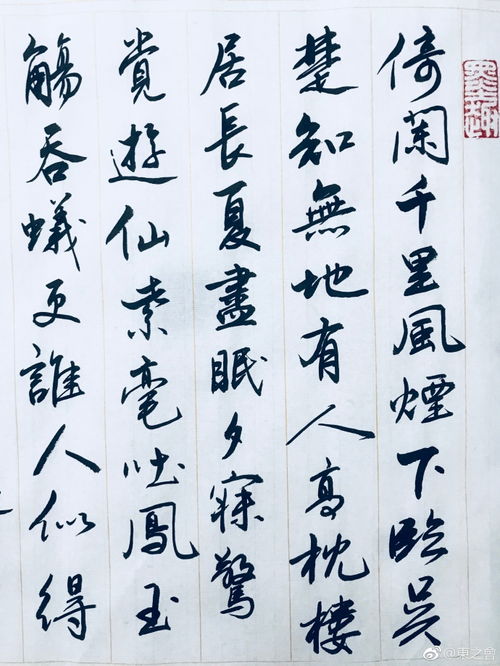 墨趣
倚闌千里風煙下臨吳
楚知無地有人高枕樓
居長夏盡眠夕寐驚
覺遊仙紫毫吐鳳玉
觴吞蟻更誰人似得
@東之曾